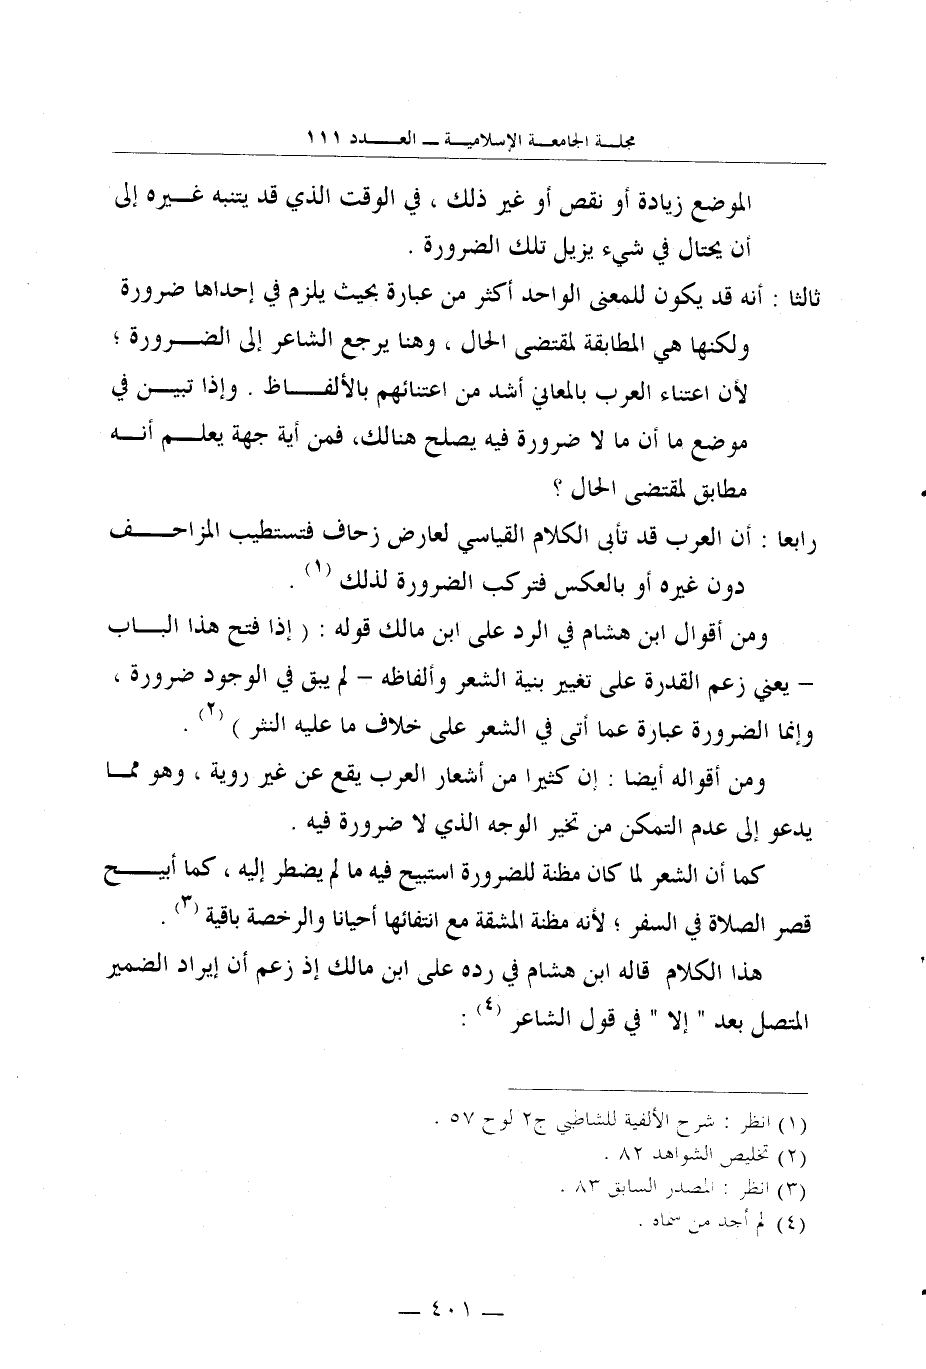 مجلة الجامعة الإسلامية – العدد ١١١
الموضع زيادة أو نقص أو غير ذلك ، في الوقت الذي قد يتنبه غيره إلى
أن يحتال في شيء يزيل تلك الضرورة .
ثالثا : أنه قد يكون للمعنى الواحد أكثر من عبارة بحيث يلزم في إحداها ضرورة
ولكنها هي المطابقة لمقتضى الحال ، وهنا يرجع الشاعر إلى الضرورة ؛
لأن اعتناء العرب بالمعاني أشد من اعتنائهم بالألفاظ . وإذا تبين في
موضع ما أن ما لا ضرورة فيه يصلح هنالك، فمن أية جهة يعلم أنه
مطابق لمقتضى الحال ؟
رابعا : أن العرب قد تأبى الكلام القياسي لعارض زحاف فتستطيب المزاحف
دون غيره أو بالعكس فتركب الضرورة لذلك (١) .
ومن أقوال ابن هشام في الرد على ابن مالك قوله : ( إذا فتح هذا الباب
– يعني زعم القدرة على تغيير بنية الشعر وألفاظه – لم يبق في الوجود ضرورة ،
وإنما الضرورة عبارة عما أتى في الشعر على خلاف ما عليه النثر ) (٢) .
ومن أقواله أيضا : إن كثيرا من أشعار العرب يقع عن غير روية ، وهو مما
يدعو إلى عدم التمكن من تخير الوجه الذي لا ضرورة فيه .
كما أن الشعر لما كان مظنة للضرورة استبيح فيه ما لم يضطر إليه ، كما أبيح
قصر الصلاة في السفر ؛ لأنه مظنة المشقة مع انتفائها أحيانا والرخصة باقية (٣) .
هذا الكلام قاله ابن هشام في رده على ابن مالك إذ زعم أن إيراد الضمير
المتصل بعد " إلا " في قول الشاعر (٤) :
(١) انظر : شرح الألفية للشاطبي ج٢ لوح ٥٧ .
(٢) تخليص الشواهد ٨٢ .
(٣) انظر : المصدر السابق ٨٣ .
(٤) لم أجد من سماه .
– ٤٠١ –